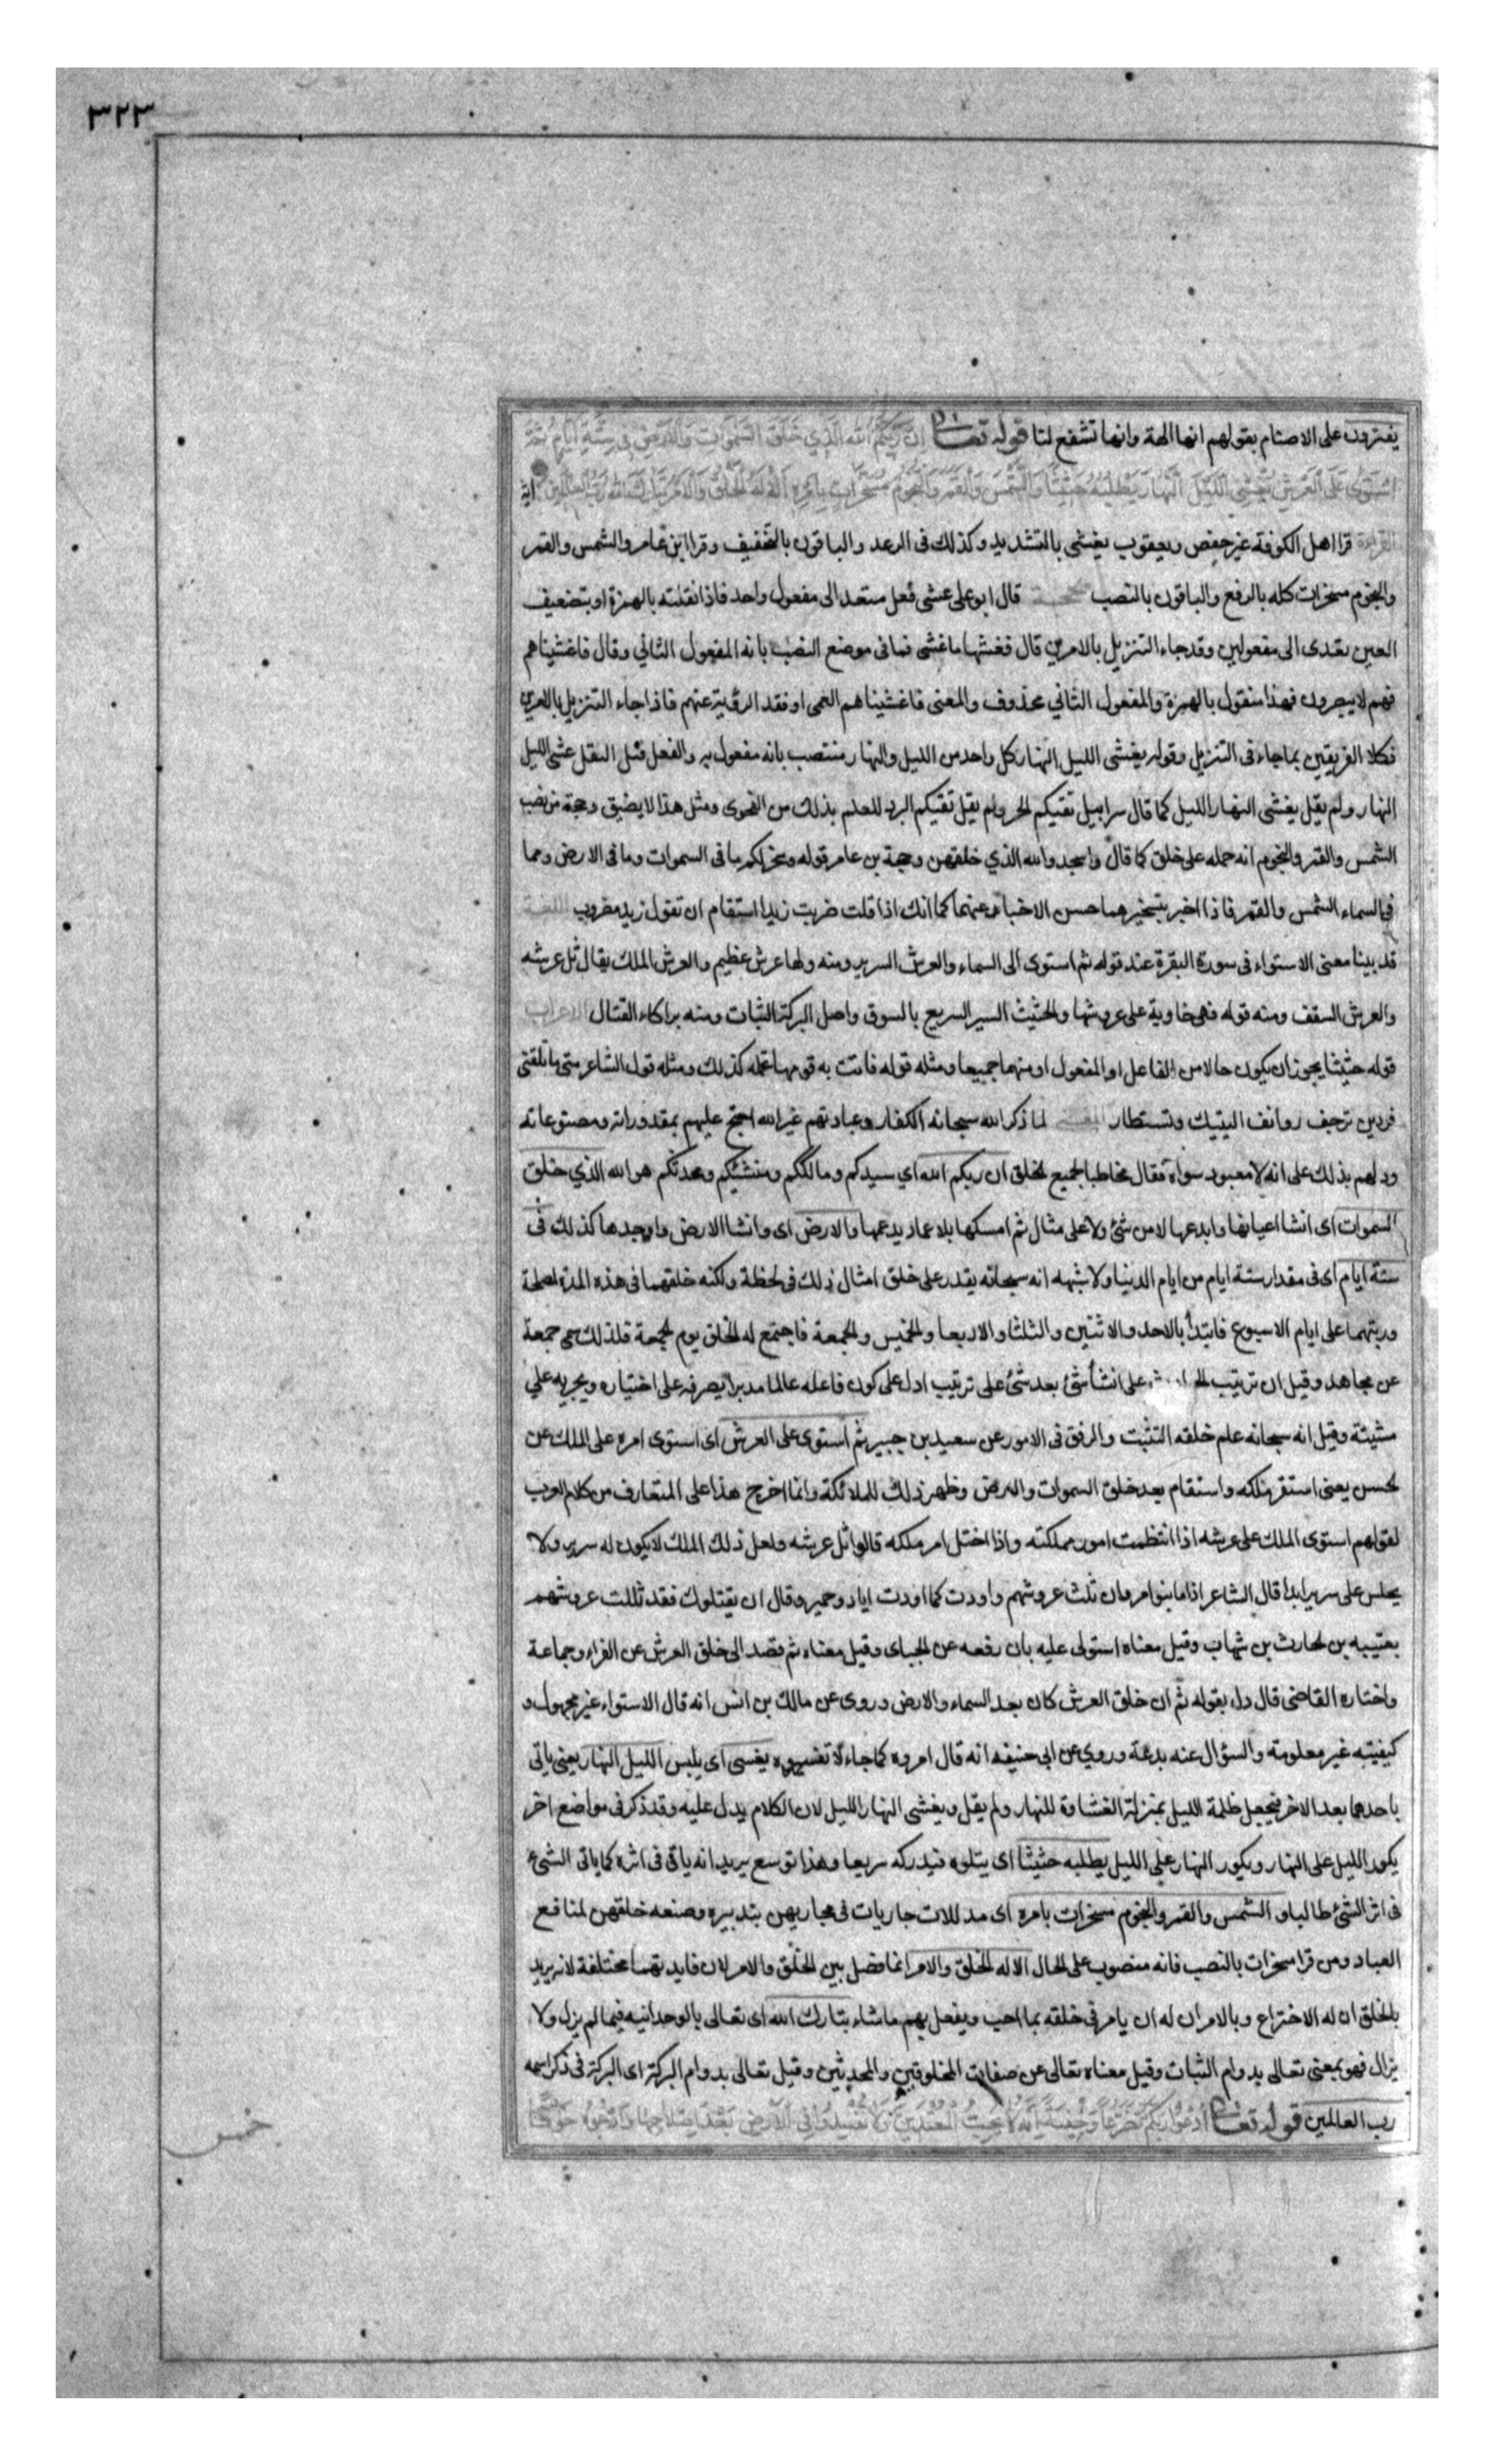 ٣٢٣
يفترون على الاصنام بقولهم انها الهة وانها تشفع لنا قوله تعالى اِنَّ رَبَّكُمُ اللّٰهُ الَّذِي خَلَقَ السَّمٰوَاتِ وَالْاَرْضَ فِي سِتَّةِ اَيَّامٍ ثُمَّ
اسْتَوٰى عَلَى الْعَرْشِ يُغْشِي اللَّيْلَ النَّهَارَ يَطْلُبُهُ حَثِيثًا وَالشَّمْسَ وَالْقَمَرَ وَالنُّجُومَ مُسَخَّرَاتٍ بِاَمْرِهِ اَلَا لَهُ الْخَلْقُ وَالْاَمْرُ تَبَارَكَ اللّٰهُ رَبُّ الْعَالَمِينَ اية
القراءة قرا اهل الكوفة غير حفص ويعقوب يغشى بالتشديد وكذلك فى الرعد والباقون بالتخفيف وقرا ابن عامر والشمس والقمر
والنجوم مسخرات كله بالرفع والباقون بالنصب قال ابو على غشى فعل متعد الى مفعول واحد فاذا نقلته بالهمزة او بتضعيف
العين تعدى الى مفعولين وقد جاء التنزيل بالامرين قال فغشها ما غشى فما فى موضع النصب بانه المفعول الثاني وقال فاغشيناهم
فهم لا يبصرون فهذا منقول بالهمزة والمفعول الثاني محذوف والمعنى فاغشيناهم العمى او فقد الرؤية عنهم فاذا جاء التنزيل بالامرين
فكلا الفريقين بما جاء فى التنزيل وقوله يغشى الليل النهار كل واحد من الليل والنهار منتصب بانه مفعول به والفعل قبل النقل غشى الليل
النهار ولم يقل يغشى النهار الليل كما قال سرابيل تقيكم الحر ولم يقل تقيكم البرد للعلم بذلك من الفحوى ومثل هذا لا يضيق وحجة من نصب
الشمس والقمر والنجوم انه حمله على خلق كما قال واسجدوا لله الذي خلقهن وحجة بن عامر قوله وسخر لكم ما فى السموات وما فى الارض ومما
فى السماء الشمس والقمر فاذا اخبر بتسخيرهما حسن الاخبار عنهما كما انك اذا قلت ضربت زيدا استقام ان تقول زيد مضروب اللغة
قد بينا معنى الاستواء فى سورة البقرة عند قوله ثم استوى الى السماء والعرش السرير ومنه ولها عرش عظيم والعرش الملك يقال ثل عرشه
والعرش السقف ومنه قوله فهى خاوية على عروشها والحثيث السير السريع بالسوق واصل البركة الثبات ومنه براكاء القتال الاعراب
قوله حثيثا يجوز ان يكون حالا من الفاعل او المفعول او منهما جميعا ومثله قوله فاتت به قومها تحمله كذلك ومثله قول الشاعر متى ما تلقنى
فردين ترجف روانف اليتيك وتستطار المعنى لما ذكر الله سبحانه الكفار وعبادتهم غير الله احتج عليهم بمقدوراته ومصنوعاته
ودلهم بذلك على انه لا معبود سواه فقال مخاطبا لجميع الخلق ان ربكم الله اي سيدكم ومالككم ومنشئكم ومحدثكم هو الله الذي خلق
السموات اى انشا اعيانها وابدعها لا من شئ ولا على مثال ثم امسكها بلا عماد يدعمها والارض اى وانشا الارض واوجدها كذلك فى
ستة ايام اى فى مقدار ستة ايام من ايام الدينا ولا شبهه انه سبحانه يقدر على خلق امثال ذلك فى لحظة ولكنه خلقهما فى هذه المدة لمصلحة
ورتبهما على ايام الاسبوع فابتدأ بالاحد والاثنين والثلثا والاربعا والخميس والجمعة فاجتمع له الخلق يوم الجمعة فلذلك سمى جمعة
عن مجاهد وقيل ان ترتيب على انشأ شئ بعد شئ على ترتيب ادل على كون فاعله عالما مدبرا يصرفه على اختياره ويجريه علي
مشيئة وقيل انه سبحانه علم خلقه التثبت والرفق فى الامور عن سعيد بن جبير ثم استوى على العرش اى استوى امره على الملك عن
الحسن يعنى استقر ملكه واستقام بعد خلق السموات والارض وظهر ذلك للملائكة وانما اخرج هذا على المتعارف من كلام العرب
لقولهم استوى الملك على عرشه اذا انتظمت امور مملكته واذا اختل امر ملكه قالوا ثل عرشه ولعل ذلك الملك لا يكون له سرير ولا
يجلس على سرير ابدا قال الشاعر اذا ما بنوا مروان ثلث عروشهم واودت كما اودت اياد وحمير وقال ان يقتلوك فقد ثللت عروشهم
بعتيبه بن الحارث بن شهاب وقيل معناه استولى عليه بان رفعه عن الجباى وقيل معناه ثم قصد الى خلق العرش عن الفراء وجماعة
واختاره القاضى قال دل بقوله ثم ان خلق العرش كان بعد السماء والارض وروى عن مالك بن انس انه قال الاستواء غير مجهول و
كيفيته غير معلومة والسؤال عنه بدعة وروي عن ابى حنيفه انه قال امروه كما جاء لا تفسروه يغسى اى يلبس الليل النهار يعنى ياتى
باحدهما بعد الاخر فيجعل ظلمة الليل بمنزلة الغشاوة للنهار ولم يقل ويغشى النهار الليل لان الكلام يدل عليه وقد ذكر فى مواضع اخر
يكور الليل على النهار ويكور النهار على الليل يطلبه حثيثا اى يتلوه فيدركه سريعا وهذا توسع يريد انه ياتى فى اثره كما ياتى الشئ
فى اثر الشئ طالبا و الشمس والقمر والنجوم مسخرات بامره اى مدللات جاريات فى مجاريهن بتدبيره وصنعه خلقهن لمنافع
العباد ومن قرا مسخرات بالنصب فانه منصوب على الحال الا له الخلق والامر انما فصل بين الخلق والامر لان فايدتهما مختلفة لانه يريد
بالخلق ان له الاختراع وبالامر ان له ان يامر فى خلقه بما احب ويفعل بهم ما شاء تبارك الله اى تعالى بالوحدانيه فيما لم يزل ولا
يزال فهو بمعنى تعالى بدوام الثبات وقيل معناه تعالى عن صفات المخلوقين والمحدثين وقيل تعالى بدوام البركة اى البركة فى ذكر اسمه
رب العالمين قوله تعالى اُدْعُوا رَبَّكُمْ تَضَرُّعًا وَخُفْيَةً اِنَّهُ لَا يُحِبُّ الْمُعْتَدِينَ وَلَا تُفْسِدُوا فِي الْاَرْضِ بَعْدَ اِصْلَاحِهَا وَادْعُوهُ خَوْفًا
خمس